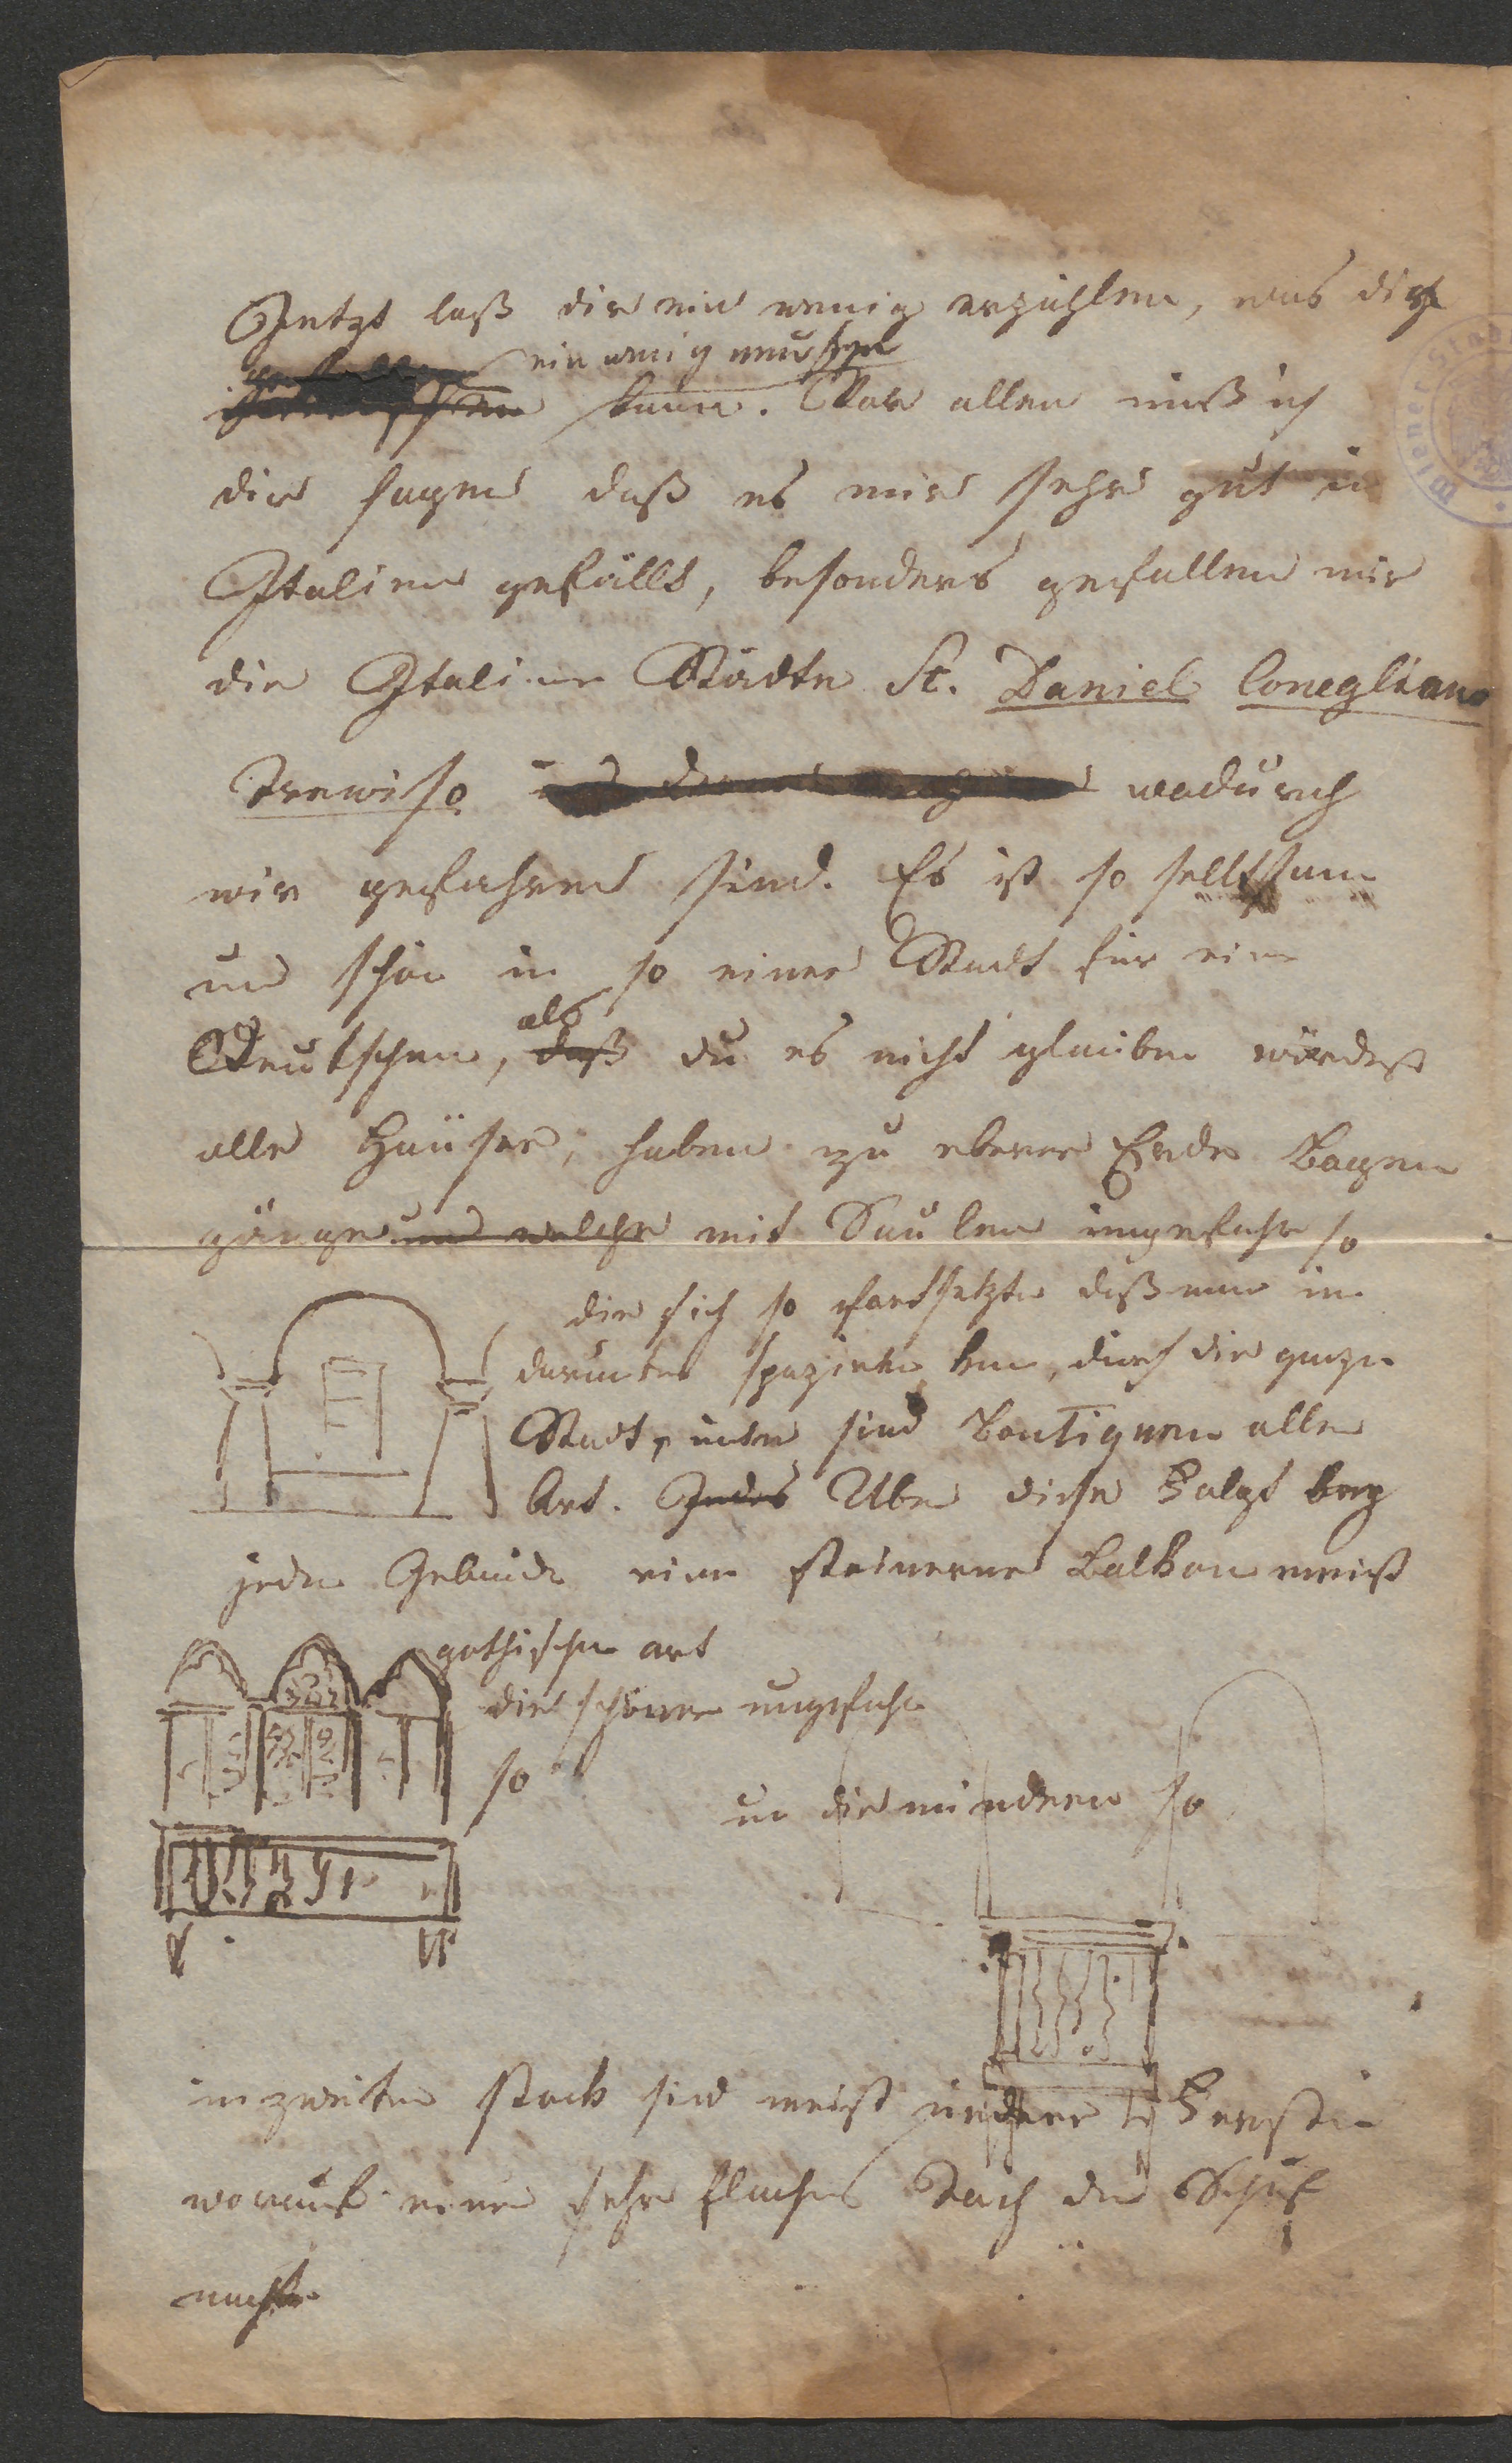 Jetzt laß dir ein wenig erzählen, was dich
ein wenig
kann. Vor allen muß ich
dir sagen daß es mir sehr gut in
Italien gefällt, besonders gefallen mir
die Italiener Städte St. Daniel Conegliano
Treviso wodurch
wir gefahren sind. Es ist so selltsam
und schön in so einer Stadt für eine
Deutschen, als daß du es nicht glauben würdest
alle Häuser, haben zu ebener Erde Bogen
gänge und welche mit Säulen ungefähr so
die sich so fortsetzte daß man im
darunter spaziren kan, durch die ganze
Stadt, unter sind Boutiquen aller
Art. Jedes Uber diese Folgt bey
jeder Gebäude eine steinerne Balkon meist
gothischer art
die schönen ungefähr
so
un die mindern so
im zweiten stock sind meist Fenster
worauf einen sehr flaches Dach den Schluß
macht
Wiener Stadt